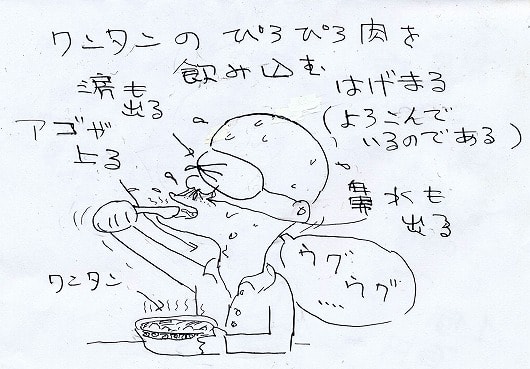 ワンタンの ぴろぴろ肉を
飲み込む
涙も
出る
はげまる
(よろこんで
いるのである)
アゴが
上る
鼻水も
出る
ワンタン
ウグ
ウグ
‥‥